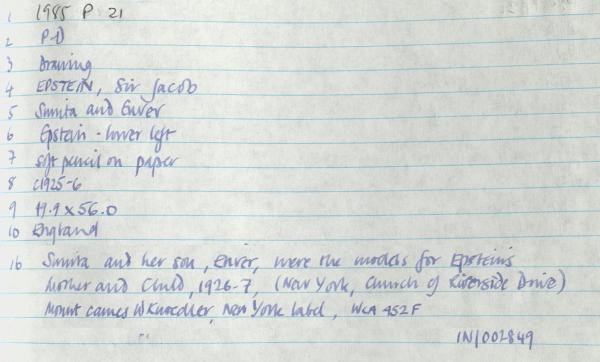 1 1985 P 21
2 P-D
3 Drawing
4 EPSTEIN, Sir Jacob
5 Sunita and Enver
6 Epstein - lower left
7 Soft pencil on paper
8 c1925-6
9 44.4 x 56.0
10 England
16 Sunita and her son, Enver, were the models for Epstein's
Mother and Child, 1926-7, (New York, Church of Riverside Drive)
Mount carries M Knoedler, New York label, WCA 452F
IN/002849